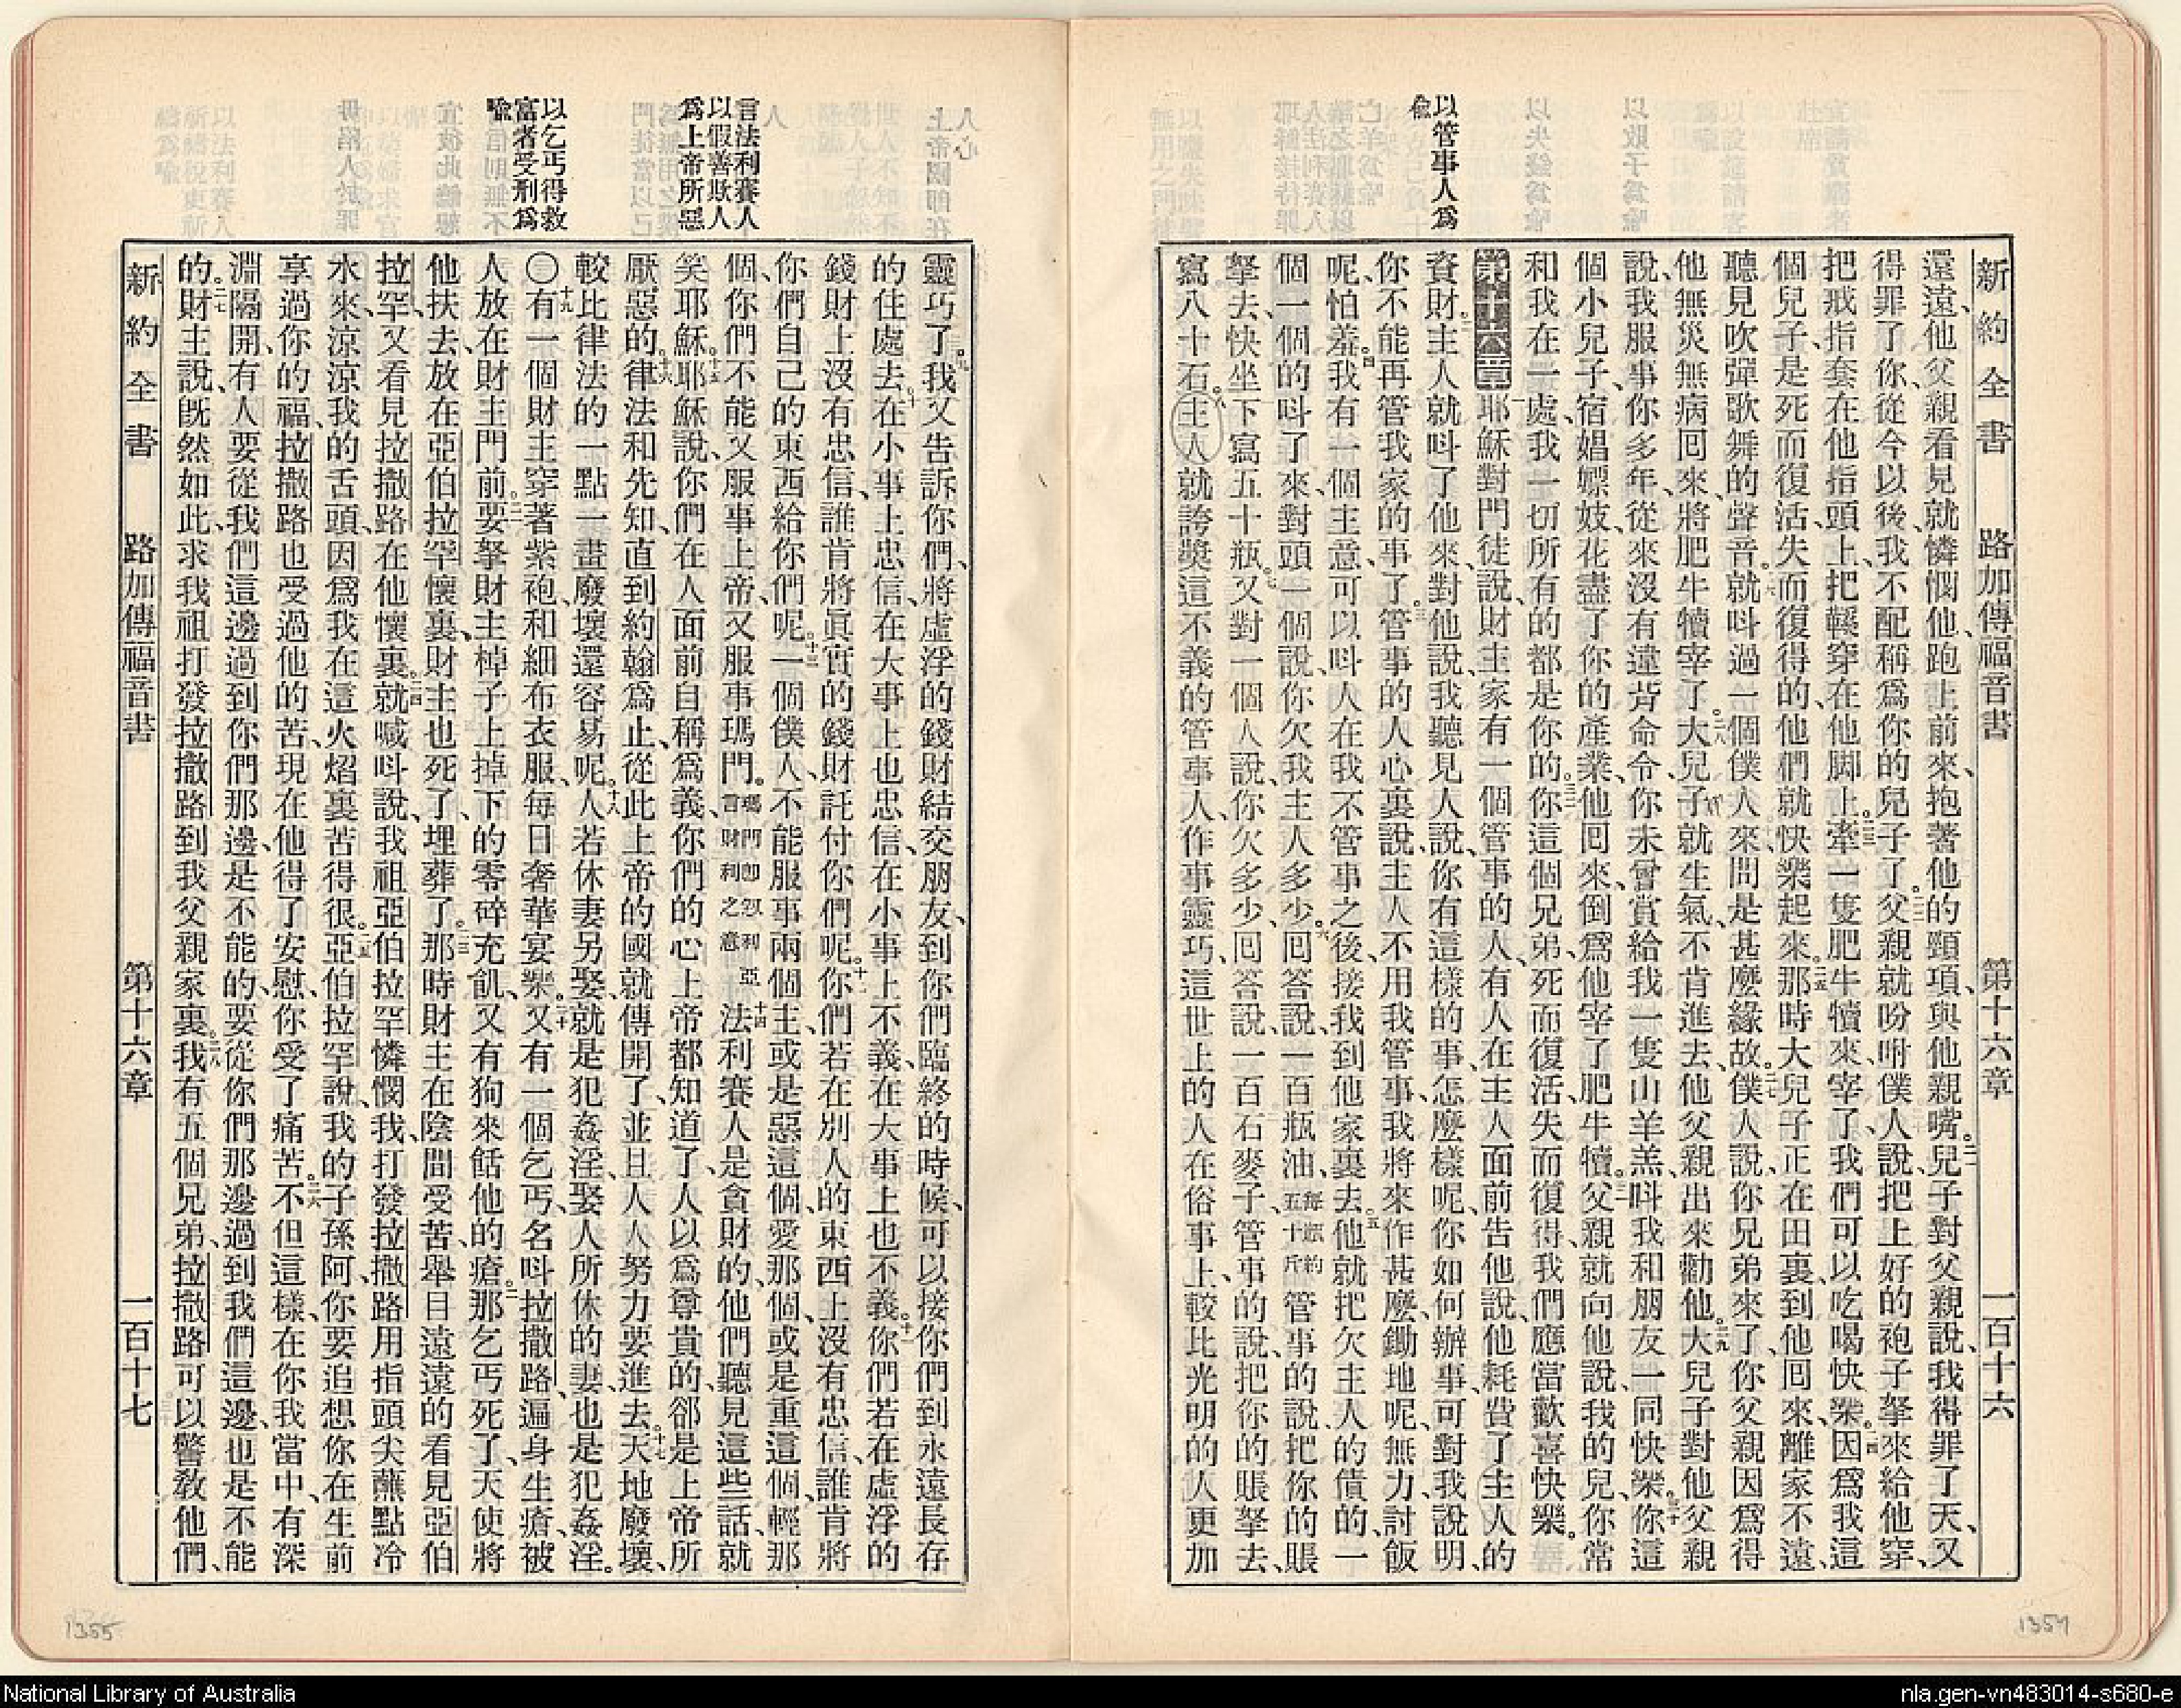 新約全書 路加傳福音書 第十六章 一百十六
還遠、他父親看見就憐憫他、跑上前來、抱著他的頸項、與他親嘴。二一兒子對父親說、我得罪了天、又
得罪了你、從今以後、我不配稱爲你的兒子了。二二父親就吩咐僕人說、把上好的袍子拏來給他穿、
把戒指套在他指頭上、把鞵穿在他脚上。二三牽一隻肥牛犢來、宰了、我們可以吃喝快樂。二四因爲我這
個兒子、是死而復活、失而復得的、他們就快樂起來。二五那時大兒子正在田裏、到他回來、離家不遠、
聽見吹彈歌舞的聲音。二六就呌過一個僕人來、問是甚麼緣故。二七僕人說、你兄弟來了、你父親因爲得
他無災無病回來、將肥牛犢宰了。二八大兒子就生氣、不肯進去、他父親出來勸他。二九大兒子對他父親
說、我服事你多年、從來沒有違背命令、你未曾賞給我一隻山羊羔、呌我和朋友一同快樂。三十你這
個小兒子、宿娼嫖妓、花盡了你的產業、他回來、倒爲他宰了肥牛犢。三一父親就向他說、我的兒、你常
和我在一處、我一切所有的都是你的。三二你這個兄弟、死而復活、失而復得、我們應當歡喜快樂。
第十六章 一耶穌對門徒說、財主家有一個管事的人、有人在主人面前告他說、他耗費了主人的
以管事人爲喻
資財。二主人就呌了他來、對他說、我聽見人說、你有這樣的事、怎麼樣呢、你如何辦事、可對我說明、
你不能再管我家的事了。三管事的人心裏說、主人不用我管事、我將來作甚麼、鋤地呢、無力、討飯
呢、怕羞。四我有一個主意、可以呌人在我不管事之後、接我到他家裏去。五他就把欠主人的債的、一
個一個的呌了來、對頭一個說、你欠我主人多少。六回答說、一百瓶油、每瓶約五十斤管事的說、把你的賬
拏去、快坐下寫五十瓶。七又對一個人說、你欠多少、回答說、一百石麥子、管事的說、把你的賬拏去、
寫八十石。八主人就誇奬這不義的管事人、作事靈巧、這世上的人、在俗事上、較比光明的人更加
新約全書 路加傳福音書 第十六章 一百十七
靈巧了。九我又告訴你們、將虛浮的錢財結交朋友、到你們臨終的時候、可以接你們到永遠長存
的住處去。十在小事上忠信、在大事上也忠信、在小事上不義、在大事上也不義。十一你們若在虛浮的
錢財上沒有忠信、誰肯將眞實的錢財託付你們呢。十二你們若在別人的東西上沒有忠信、誰肯將
你們自己的東西給你們呢。十三一個僕人、不能服事兩個主、或是惡這個、愛那個、或是重這個、輕那
個、你們不能又服事上帝、又服事瑪門。瑪門卽叙利亞言財利之意十四法利賽人是貪財的、他們聽見這些話、就
言法利賽人以假善欺人爲上帝所惡
笑耶穌。十五耶穌說、你們在人面前自稱爲義、你們的心、上帝都知道了、人以爲尊貴的、卻是上帝所
厭惡的。十六律法和先知、直到約翰爲止、從此上帝的國就傳開了、並且人人努力要進去。十七天地廢壞、
較比律法的一點一畫廢壞還容易呢。十八人若休妻另娶、就是犯姦淫、娶人所休的妻、也是犯姦淫。
以乞丐得救富者受刑爲喻
〇十九有一個財主、穿著紫袍、和細布衣服、每日奢華宴樂。二十又有一個乞丐、名呌拉撒路、遍身生瘡、被
人放在財主門前。二一要拏財主棹子上掉下的零碎充飢、又有狗來餂他的瘡。二二那乞丐死了、天使將
他扶去、放在亞伯拉罕懷裏、財主也死了、埋葬了。二三那時財主在陰間受苦、舉目遠遠的看見亞伯
拉罕、又看見拉撒路在他懷裏。二四就喊呌說、我祖亞伯拉罕、憐憫我、打發拉撒路用指頭尖蘸點冷
水來、涼涼我的舌頭、因爲我在這火熖裏苦得很。二五亞伯拉罕說、我的子孫阿、你要追想你在生前
享過你的福、拉撒路也受過他的苦、現在他得了安慰、你受了痛苦。二六不但這樣、在你我當中、有深
淵隔開、有人要從我們這邊過到你們那邊、是不能的、要從你們那邊過到我們這邊、也是不能
的。二七財主說、旣然如此、求我祖打發拉撒路到我父親家裏。二八我有五個兄弟、拉撒路可以警敎他們、
1355
1354
National Library of Australia
nla.gen-vn483014-s680-e